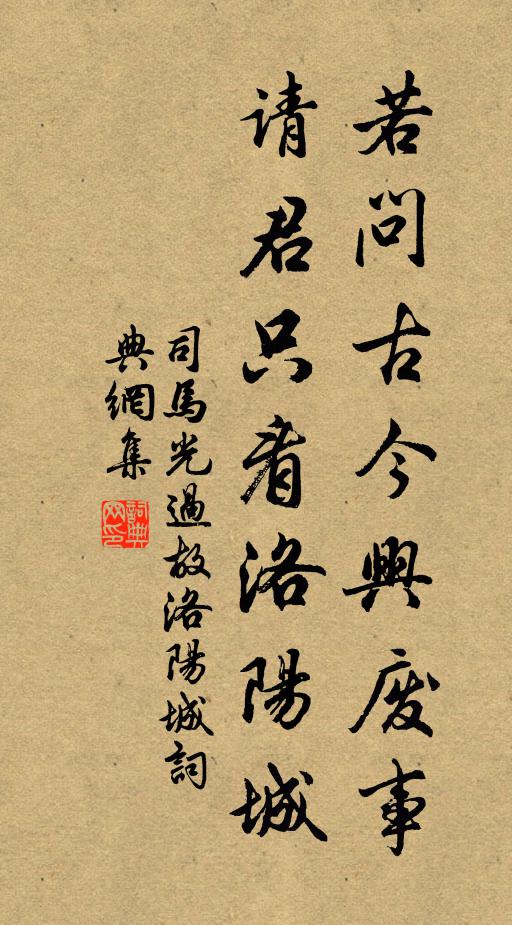 若問古今興废事
请君只看洛陽城
司馬光過故洛陽城詞
典網集
詞典
网印